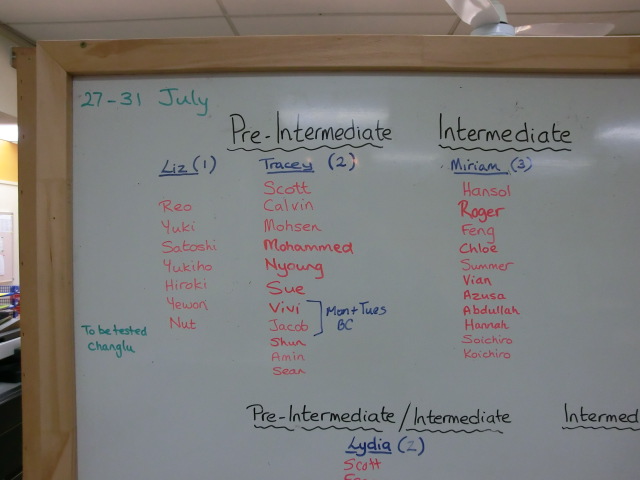 27-31 July
Pre-Intermediate
Intermediate
Liz (1)
Reo
Yuki
Satoshi
Yukiho
Hiroki
Yewon
Nut
Tracey (2)
Scott
Calvin
Mohsen
Mohammed
Nyoung
Sue
Vivi
Jacob
Mon + Tues
BC
Shun
Amin
Sean
Miriam (3)
Hansol
Roger
Feng
Chloe
Summer
Vian
Azusa
Abdullah
Hannah
Soichiro
Koichiro
To be tested
Changlu
Pre-Intermediate/Intermediate
Lydia (2)
Scott
Intermed